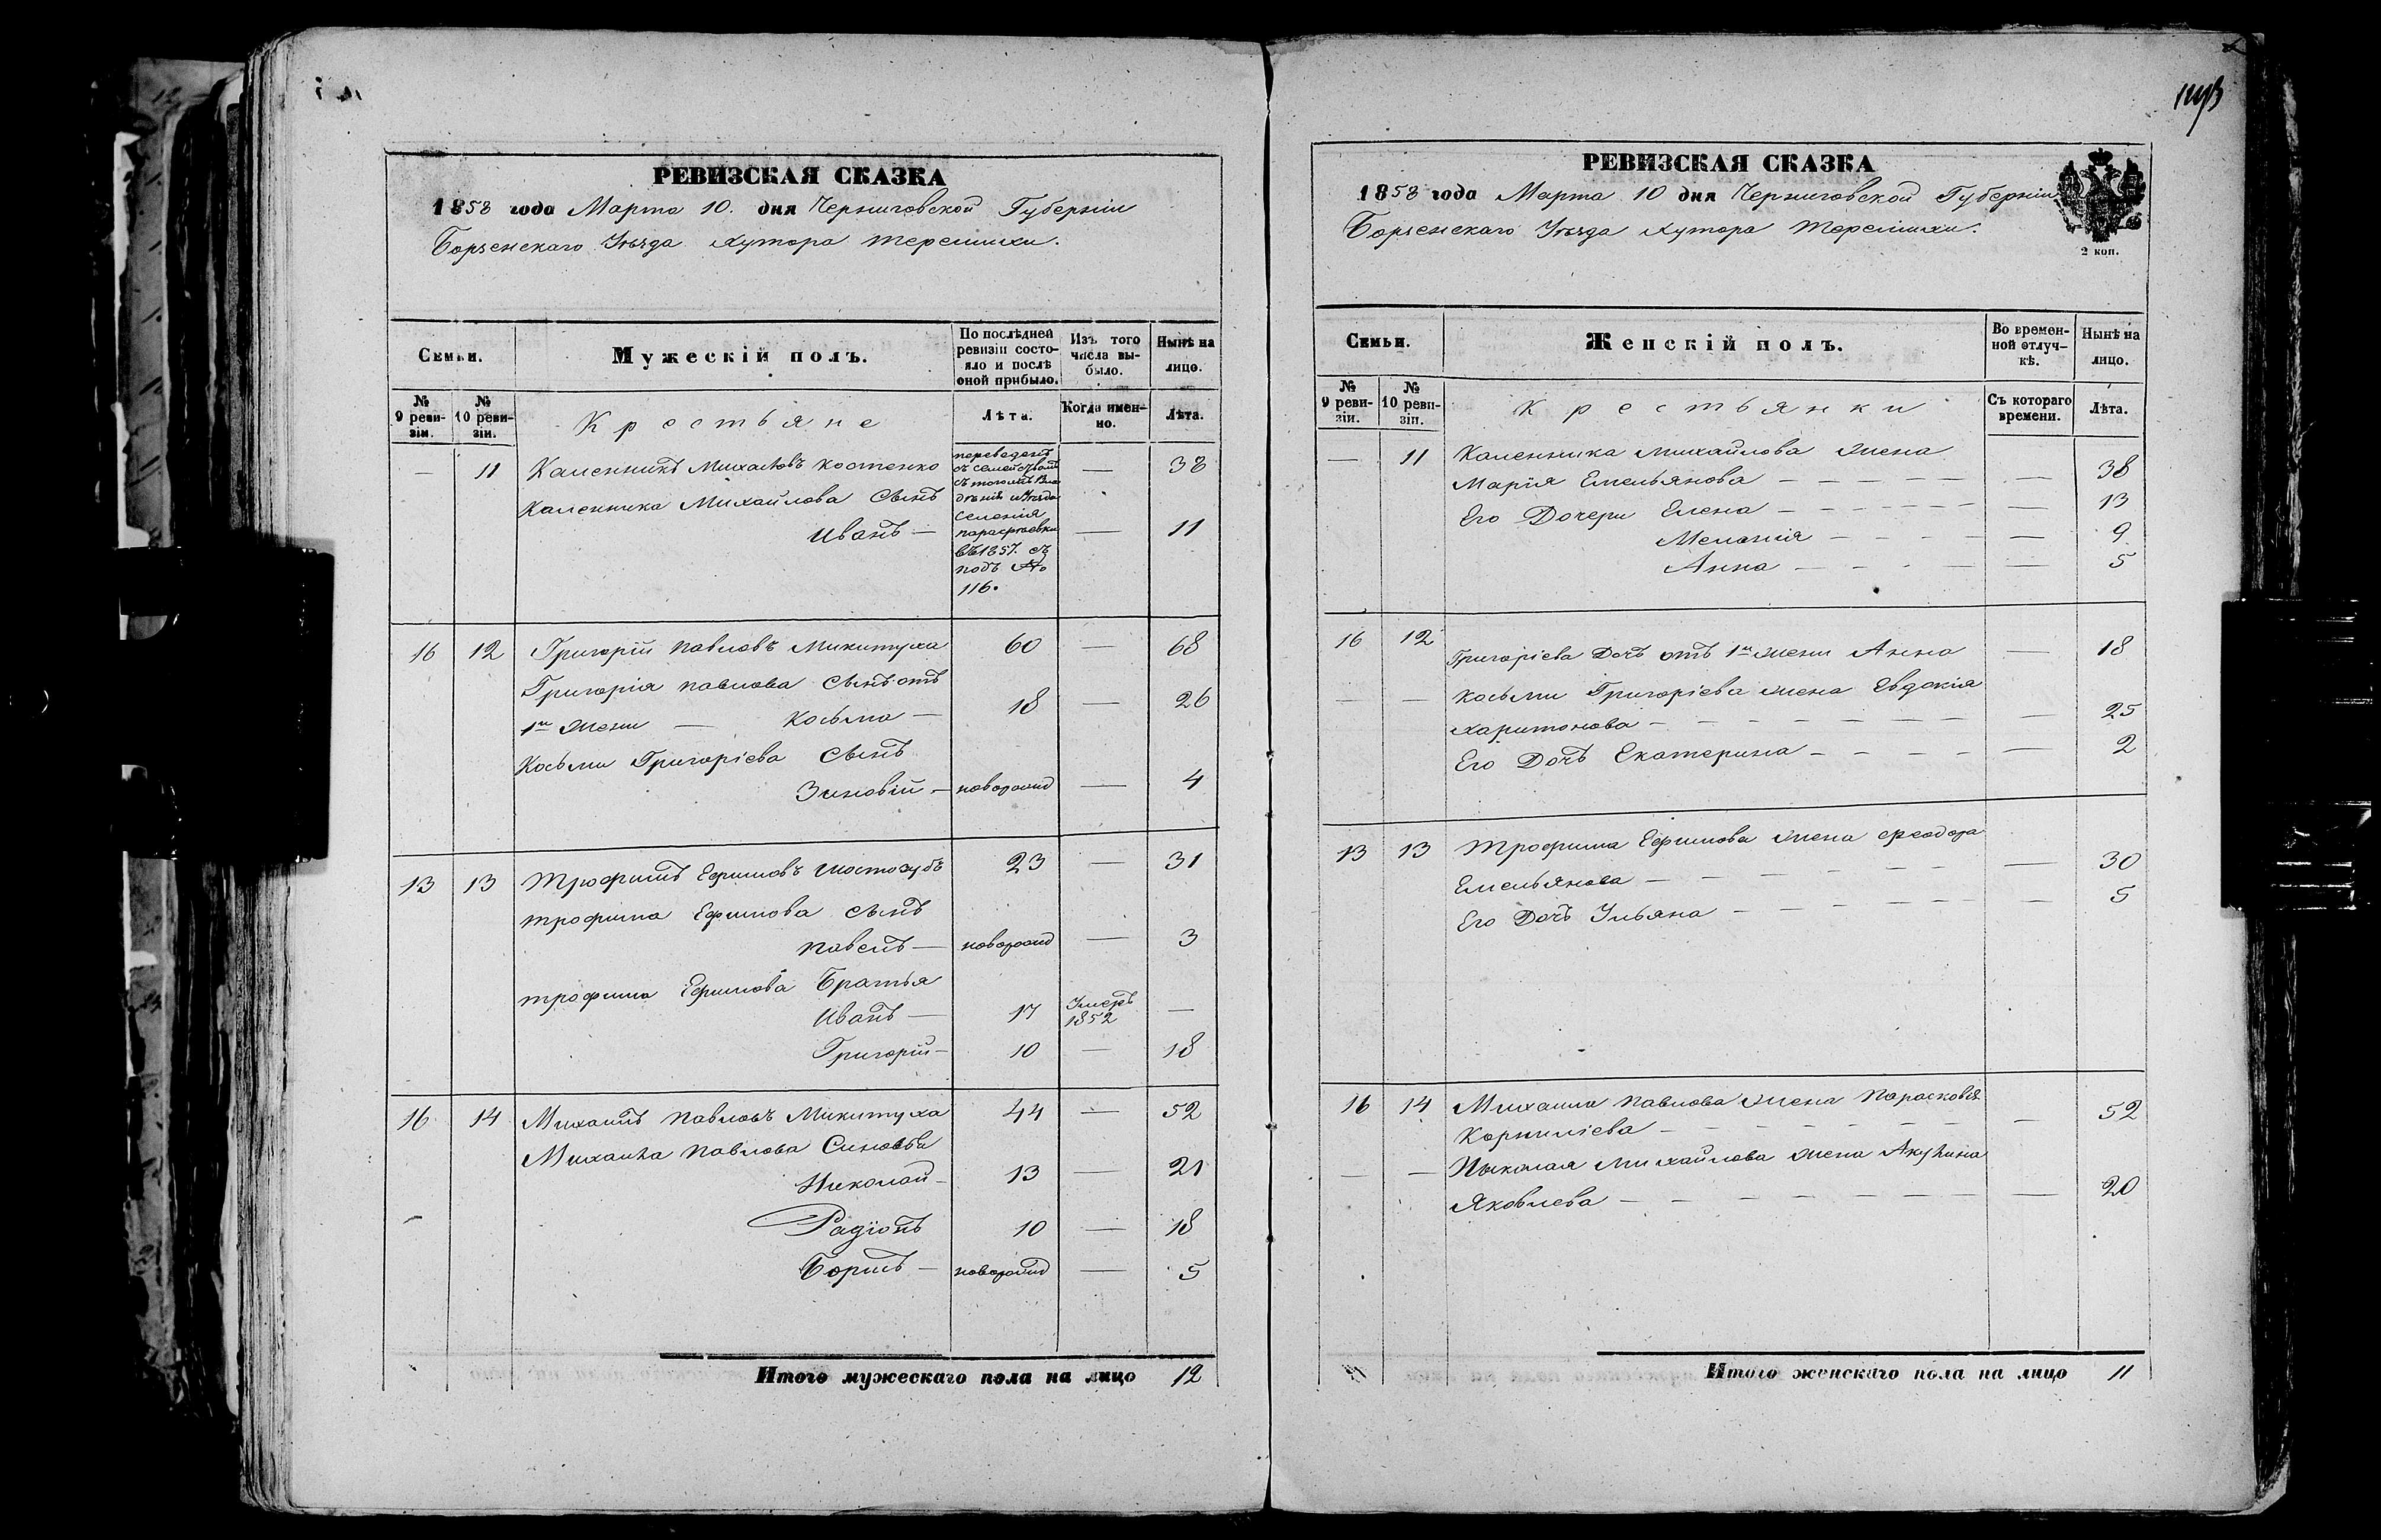 РЕВИЗСКАЯ СКАЗКА
1858 года Марта 10. дня Черниговской Губерніи
Борзенскаго Уѣзда хутора Терешихи.
Семьи.
Мужескій полъ.
По послѣдней ревизіи состояло и послѣ оной прибыло.
Изъ того числа выбыло.
Нынѣ на лицо.
№ 9 ревизіи.
№ 10 ревизіи.
Крестьяне
Лѣта.
Когда именно.
Лѣта.
— 11 Каленникъ Михайловъ Костенко — 38
Каленника Михайлова Сынъ
Иванъ — — 11
переведенъ
съ семействомъ
съ того жъ Вла
дѣнія и Уѣзда
Селенія
Парафѣевки
въ 1857. съ
подъ №
116.
16 12 Григорій Павловъ Микитуха 60 — 68
Григорія Павлова Сынъ отъ
1й жени — Косьма — 18 — 26
Косьми Григоріева Сынъ
Зиновій — новорожд — 4
13 13 Трофимъ Ефимовъ Шостозубъ 23 — 31
Трофима Ефимова Сынъ
Павелъ — новорожд — 3
Трофима Ефимова Братья
Иванъ — 17 Умеръ 1852 —
Григорій — 10 — 18
16 14 Михаилъ Павловъ Микитуха 44 — 52
Михаила Павлова Синовья
Николай — 13 — 21
Радіонъ 10 — 18
Борисъ — новорожд — 5
Итого мужескаго пола на лицо 12
РЕВИЗСКАЯ СКАЗКА
1858 года Марта 10 дня Черниговской Губерніи
Борзенскаго Уѣзда хутора Терешихи.
2 коп.
Семьи.
Женскій полъ.
Во временной отлучкѣ.
Нынѣ на лицо.
№ 9 ревизіи.
№ 10 ревизіи.
Крестьянки
Съ котораго времени.
Лѣта.
— 11 Каленника Михайлова жена
Марія Емельянова — — 38
Его Дочери Елена — — 13
Меланія — — 9
Анна — — 5
16 12 Григоріева Дочь отъ 1й жени Анна — 18
— — Косьми Григоріева жена Евдокія
Харитонова — — 25
Его Дочь Екатерина — — 2
13 13 Трофима Ефимова жена Феодора
Емельянова — — 30
Его Дочь Ульяна — — 5
16 14 Михаила Павлова жена Парасковія
Корниліева — — 52
— — Николая Михайлова жена Акулина
Яковлева — — 20
Итого женскаго пола на лицо 11